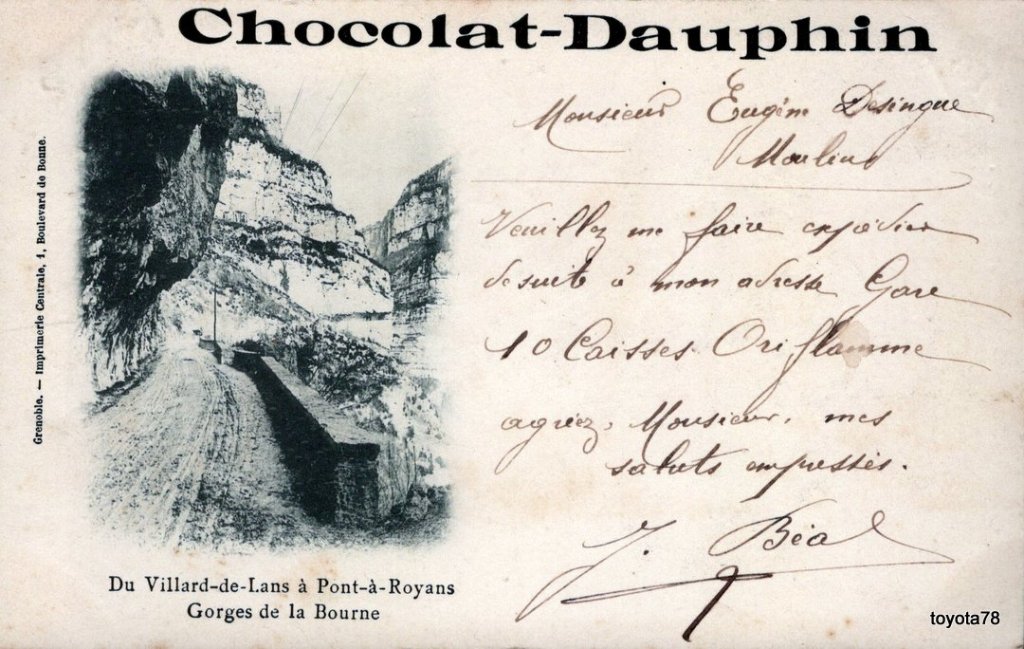 Chocolat-Dauphin
Grenoble. — Imprimerie Centrale, 1, Boulevard de Bonne.
Monsieur Eugène Desingue
Moulins
Veuillez me faire expédier
de suite à mon adresse Gare
10 Caisses Oriflamme
agréez, Monsieur, mes
saluts empressés.
J. Béal
Du Villard-de-Lans à Pont-à-Royans
Gorges de la Bourne
toyota78